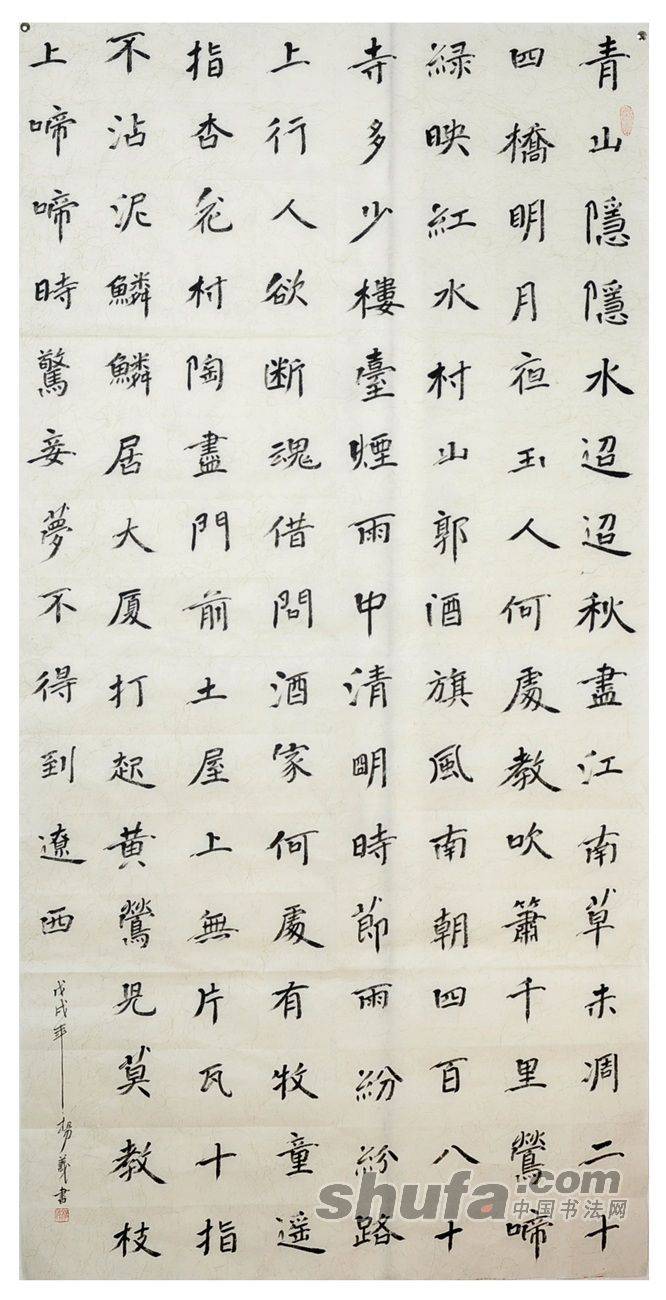 青山隱隱水迢迢秋盡江南草未凋二十
四橋明月夜玉人何處教吹簫千里鶯啼
緑映紅水村山郭酒旗風南朝四百八十
寺多少樓臺煙雨中清明時節雨紛紛路
上行人欲断魂借問酒家何處有牧童遥
指杏花村陶盡門前土屋上無片瓦十指
不沾泥鱗鱗居大厦打起黄鶯兒莫教枝
上啼啼時驚妾夢不得到遼西
戊戌年楊義書
shufa.com
中国书法网